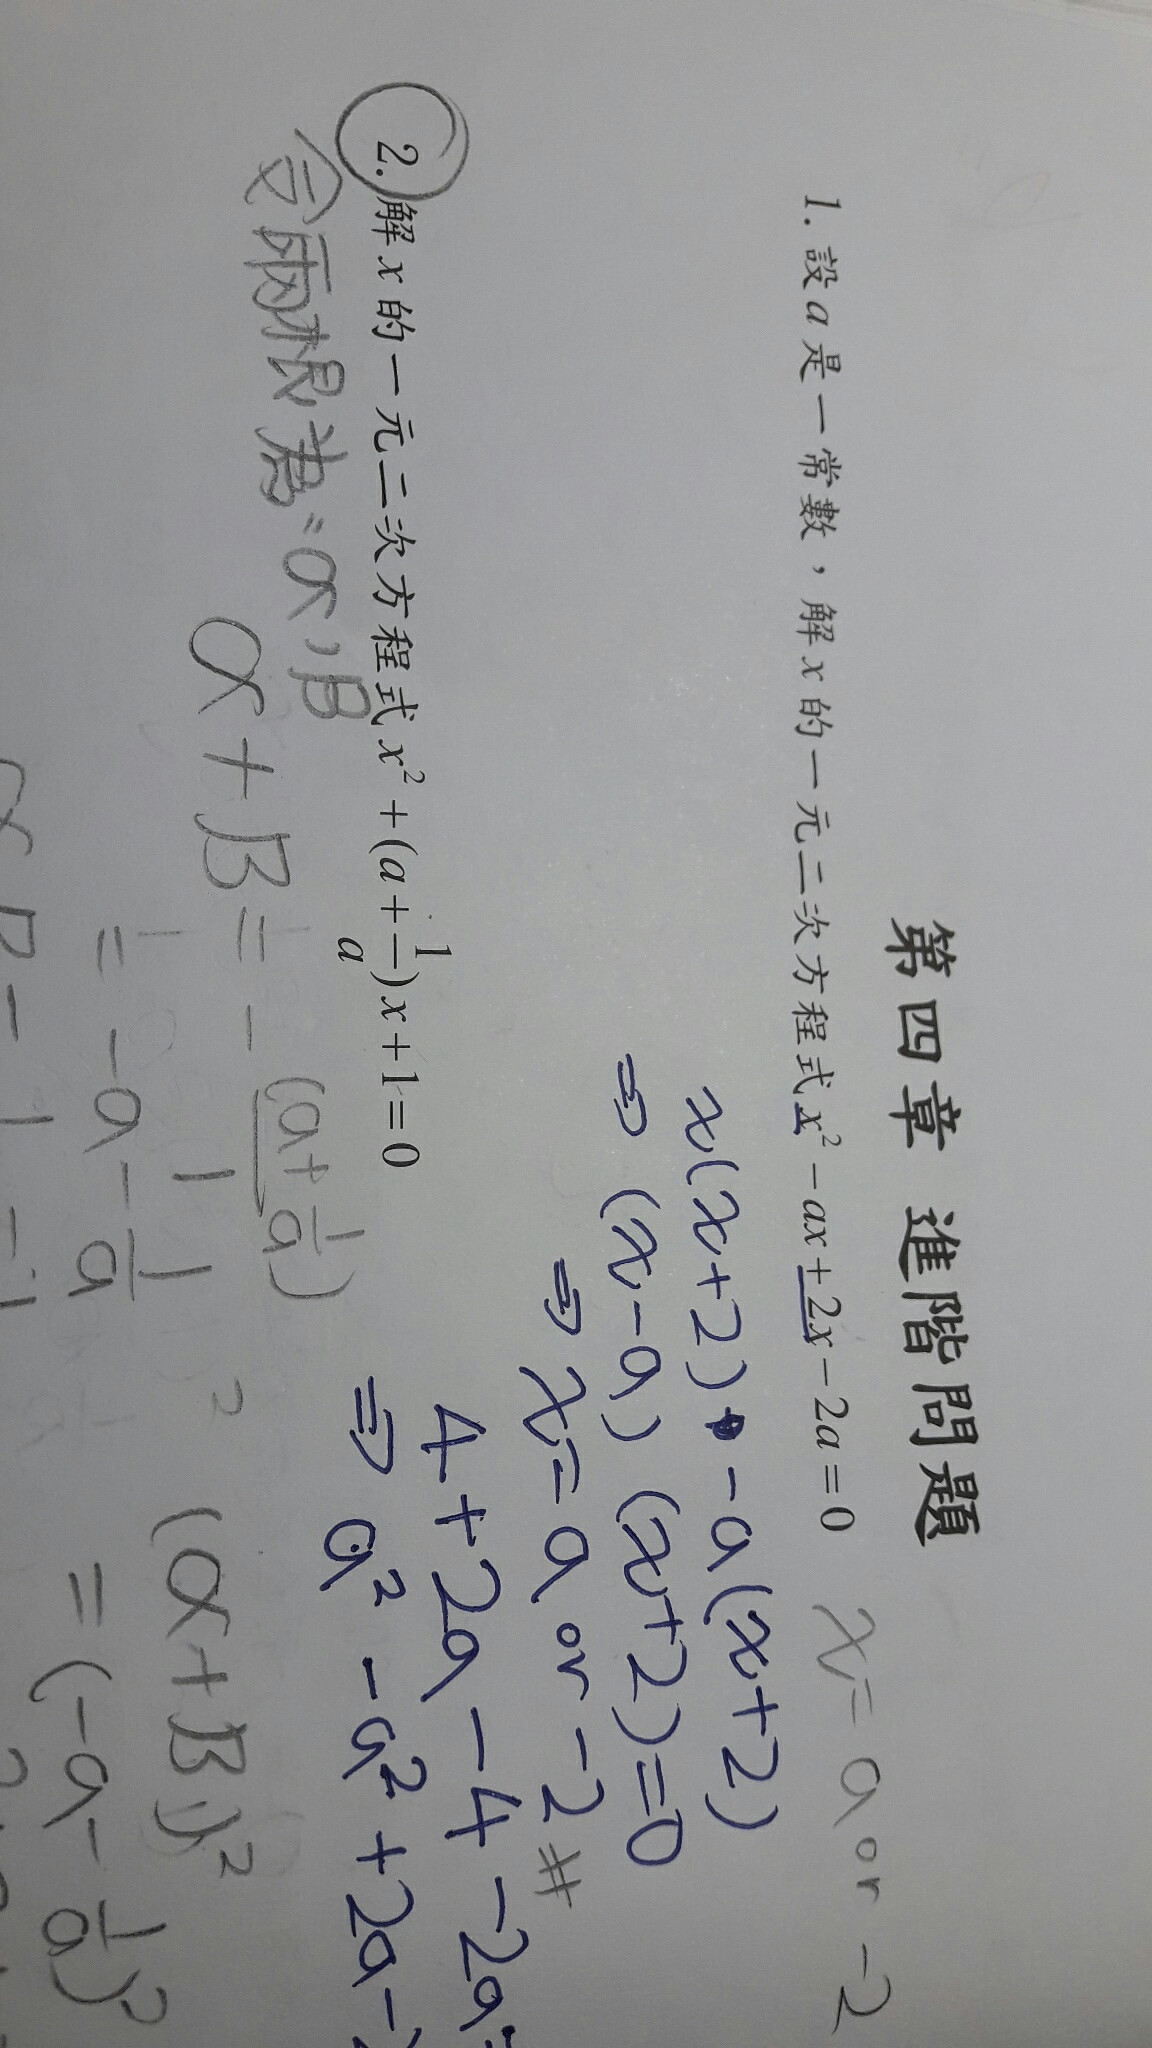 第四章 進階問題
1. 設a是一常數，解x的一元二次方程式x²-ax+2x-2a=0 x=a or -2
x(x+2) -a(x+2)
⇒ (x-a)(x+2)=0
⇒ x=a or -2 #
4+2a-4-2a=
⇒ a²-a²+2a-
2. 解x的一元二次方程式x²+(a+1/a)x+1=0
令兩根為:α,β
α+β=-(a+1/a)
=-a-1/a
(α+β)²
=(-a-1/a)²